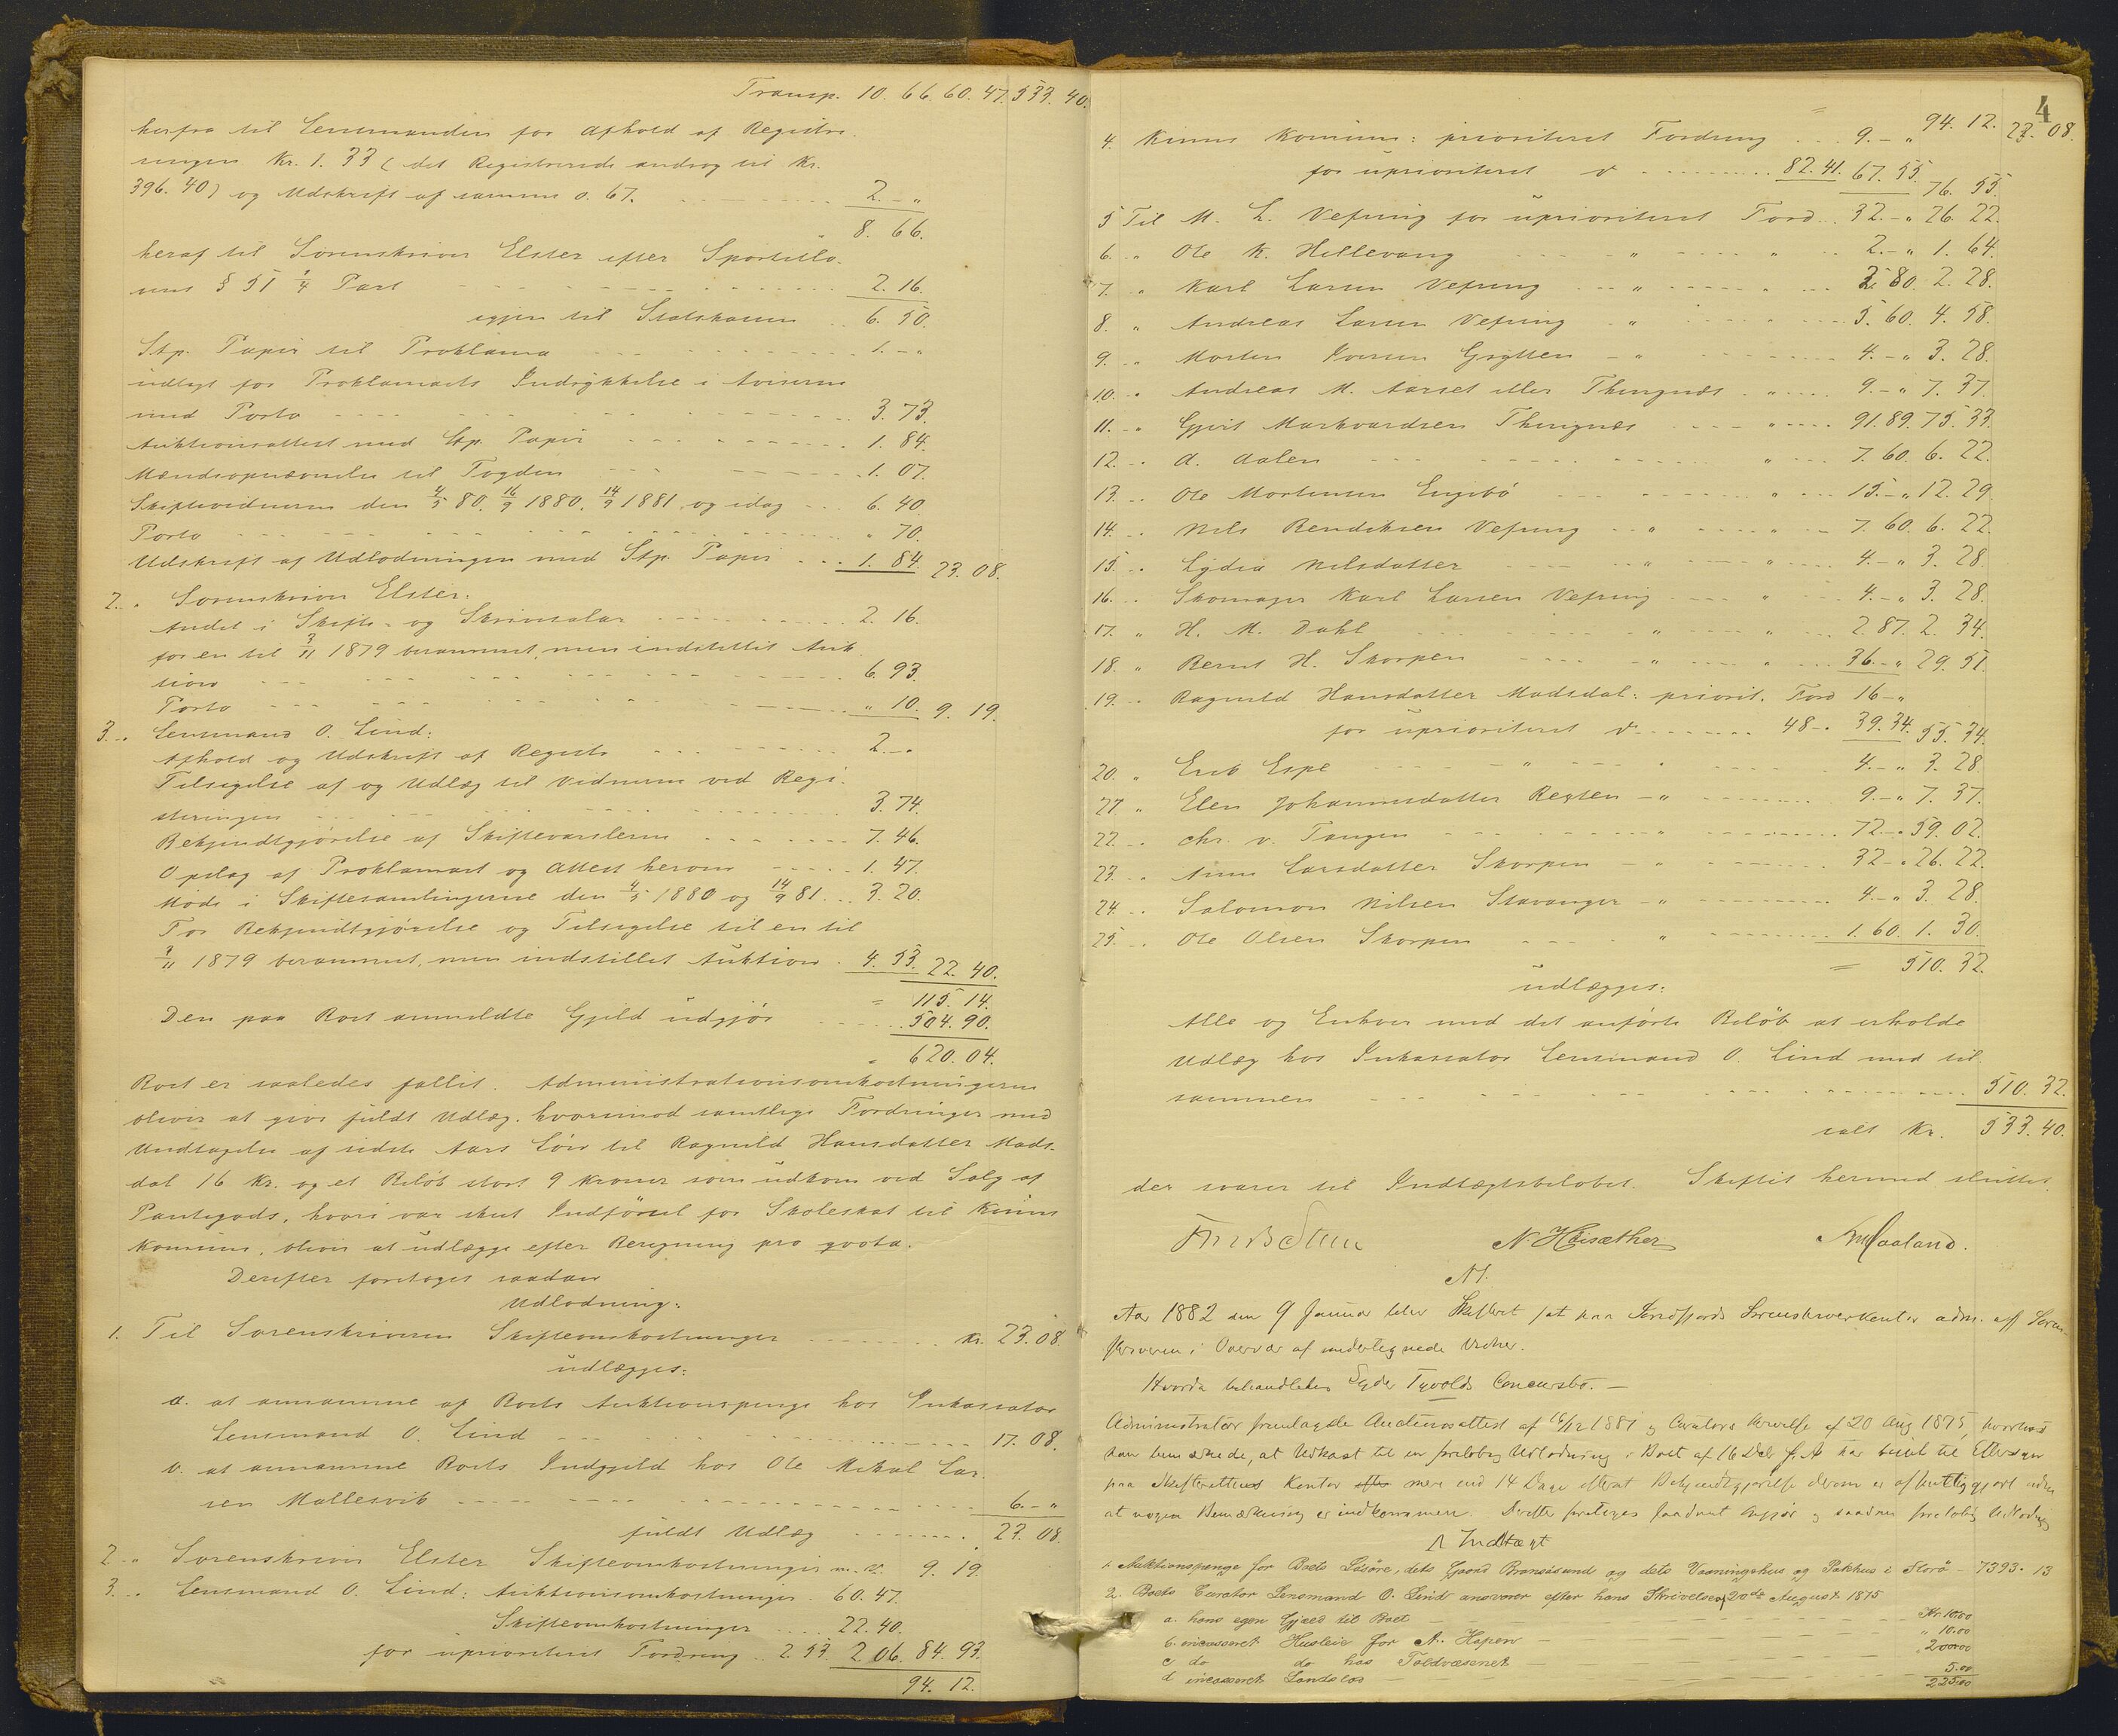 Transp. 10. 66. 60. 47. 533. 40.
herfra til Lensmanden for Afhold af Registre-
ringen Kr. 1. 33 (det Registrerede androg til Kr.
396. 40) og Udskrift af samme 0. 67. 2. - "
8. 66.
heraf til Sorenskriver Elster efter Sportello-
vens § 51 1/4 Part 2. 16.
igjen til Statskassen 6. 50.
Stp. Papir til Proklama 1. - "
udlagt for Proklamaets Indrykkelse i Aviserne
med Porto 3. 73.
Auktionsattest med Stp. Papir 1. 84.
Mændsopnævnelse til Fogden 1. 07.
Skiftevidnerne den 4/5 80. 16/9 1880. 14/9 1881 og idag 6. 40
Porto " 70.
Udskrift af Udlodningen med Stp. Papir 1. 84. 23. 08.
2. " Sorenskriver Elster.
Andel i Skifte- og Skriversalær 2. 16.
for en til 3/11 1879 berammet, men indstillet Auk-
tion 6. 93.
Porto " 10. 9. 19.
3. " Lensmand O. Lind:
Afhold og Udskrift af Registr. 2. - "
Tilsigelse af og Udlæg til Vidnerne ved Regi-
streringen 3. 74.
Bekjendtgjörelse af Skiftevarslerne 7. 46.
Opslag af Proklamaet og Attest herom 1. 47.
Möde i Skiftesamlingerne den 4/5 1880 og 14/9 81 3. 20.
For Bekjendtgjörelse og Tilsigelse til en til
3/11 1879 berammet, men indstillet Auktion 4. 53. 22. 40.
= 115. 14.
Den paa Boet anmeldte Gjeld udgjör 504. 90.
= 620. 04.
Boet er saaledes fallit. Administrationsomkostningerne
bliver at give fuldt Udlæg, hvorimod samtlige Fordringer med
Undtagelse af sidste Aars Lön til Ragnild Hansdatter Mads-
dal 16 Kr. og et Belöb stort 9 Kroner som udkom ved Salg af
Pantegods, hvori var skeet Indförsel for Skoleskat til Kinns
Kommune, bliver at udlægge efter Beregning pro qvota.
Derefter foretoges saadan
Udlodning:
1. Til Sorenskriveren Skifteomkostninger Kr. 23. 08.
udlægges:
a. at annamme af Boets Auktionspenge hos Inkassator
Lensmand O. Lind 17. 08.
b. at annamme Boets Indgjeld hos Ole Mikal Lar-
sen Mallesvik 6. - "
fuldt Udlæg 23. 08.
2 " Sorenskriver Elster Skifteomkostninger m. v. 9. 19.
3. " Lensmand O. Lind: Auktionsomkostninger 60. 47.
Skifteomkostninger 22. 40.
for uprioriteret Fordring 2. 53. 2. 06. 84. 93.
94. 12.
4
= 94. 12. 23. 08.
4. Kinns Kommune: prioriteret Fordring 9. - "
for uprioriteret d 82. 41. 67. 55. 76. 55.
5 Til M. L. Vefring for uprioriteret Ford. 32. - " 26. 22.
6. " Ole K. Hellevang " " 2. - " 1. 64.
7. " Karl Larsen Vefring " " 2. 80. 2. 28.
8. " Andreas Larsen Vefring " 5. 60. 4. 58.
9. " Morten Iversen Grytten " 4. - " 3. 28.
10. " Andreas M. Aarset eller Thingnæs " 9. - " 7. 37.
11. " Gjert Markvardsen Thingnæs " 91. 89. 75. 33.
12. " A. Aalen " 7. 60. 6. 22.
13. " Ole Mortensen Engebö " 15. - " 12. 29.
14. " Nils Bendiksen Vefring " " 7. 60. 6. 22.
15. " Lydia Nilsdatter " " 4. - " 3. 28.
16. " Skomager Karl Larsen Vefring " 4. - " 3. 28.
17. " H. M. Dahl " " 2. 87. 2. 34.
18. " Bernt H. Skorpen " " 36. - " 29. 51.
19. " Ragnild Hansdatter Madsdal: priorit. Ford 16 - "
for uprioriteret d 48 - " 39. 34. 55. 34.
20. " Erik Espe " " 4. - " 3. 28.
21. " Elen Johannesdatter Regten " 9. - " 7. 37.
22. " Chr. v. Tangen " 72. - " 59. 02.
23. " Anne Larsdatter Skorpen " 32 - " 26. 22.
24. " Salomon Nilsen Stavanger " 4. - " 3. 28.
25. " Ole Olsen Skorpen " 1. 60. 1. 30.
= 510. 32.
udlægges:
Alle og Enhver med det anförte Belöb at erholde
Udlæg hos Inkassator Lensmand O. Lind med til-
sammen 510. 32.
ialt Kr. 533. 40.
der svarer til Indtægtsbelöbet. Skiftet hermed sluttet.
N. Höisæther
Aar 1882 den 9 Januar blev Skifteret sat paa Söndfjords Sorenskriverkontor adm. af Soren-
skriveren i Overvær af undertegnede Vidner.
Hvorda behandledes Tyvolds Concursbo. -
Administrator fremlagde Auctionsattest af 16/12 1881 og Curators Skrivelse af 20 Aug. 1875, hvorhos
han bemærkede, at Udkast til en foreløbig Udlodning i Boet af 16 Dcbr f. A. har beroet til Eftersyn
paa Skifterettens Kontor mere end 14 Dage efterat Bekjendtgjørelse derom er offentliggjort uden
at nogen Bemærkning er indkommen. Derefter foretoges saadant Opgjør og saadan foreløbig Udlodning
Indtægt
1. Auktionspenge for Boets Løsøre, dets Gaard Brandsøsund og dets Vaaningshus og Pakhus i Florø 7393. 13
2. Boets Curator Lensmand O. Lind ansvarer efter hans Skrivelse af 20de August 1875
a. hans egen Gjæld til Boet Kr. 10.00
b. incasseret Husleie for A. Hopen " 10.00
c do do hos Toldvæsenet " 200.00
d incasseret Landslod 5.00
225.00